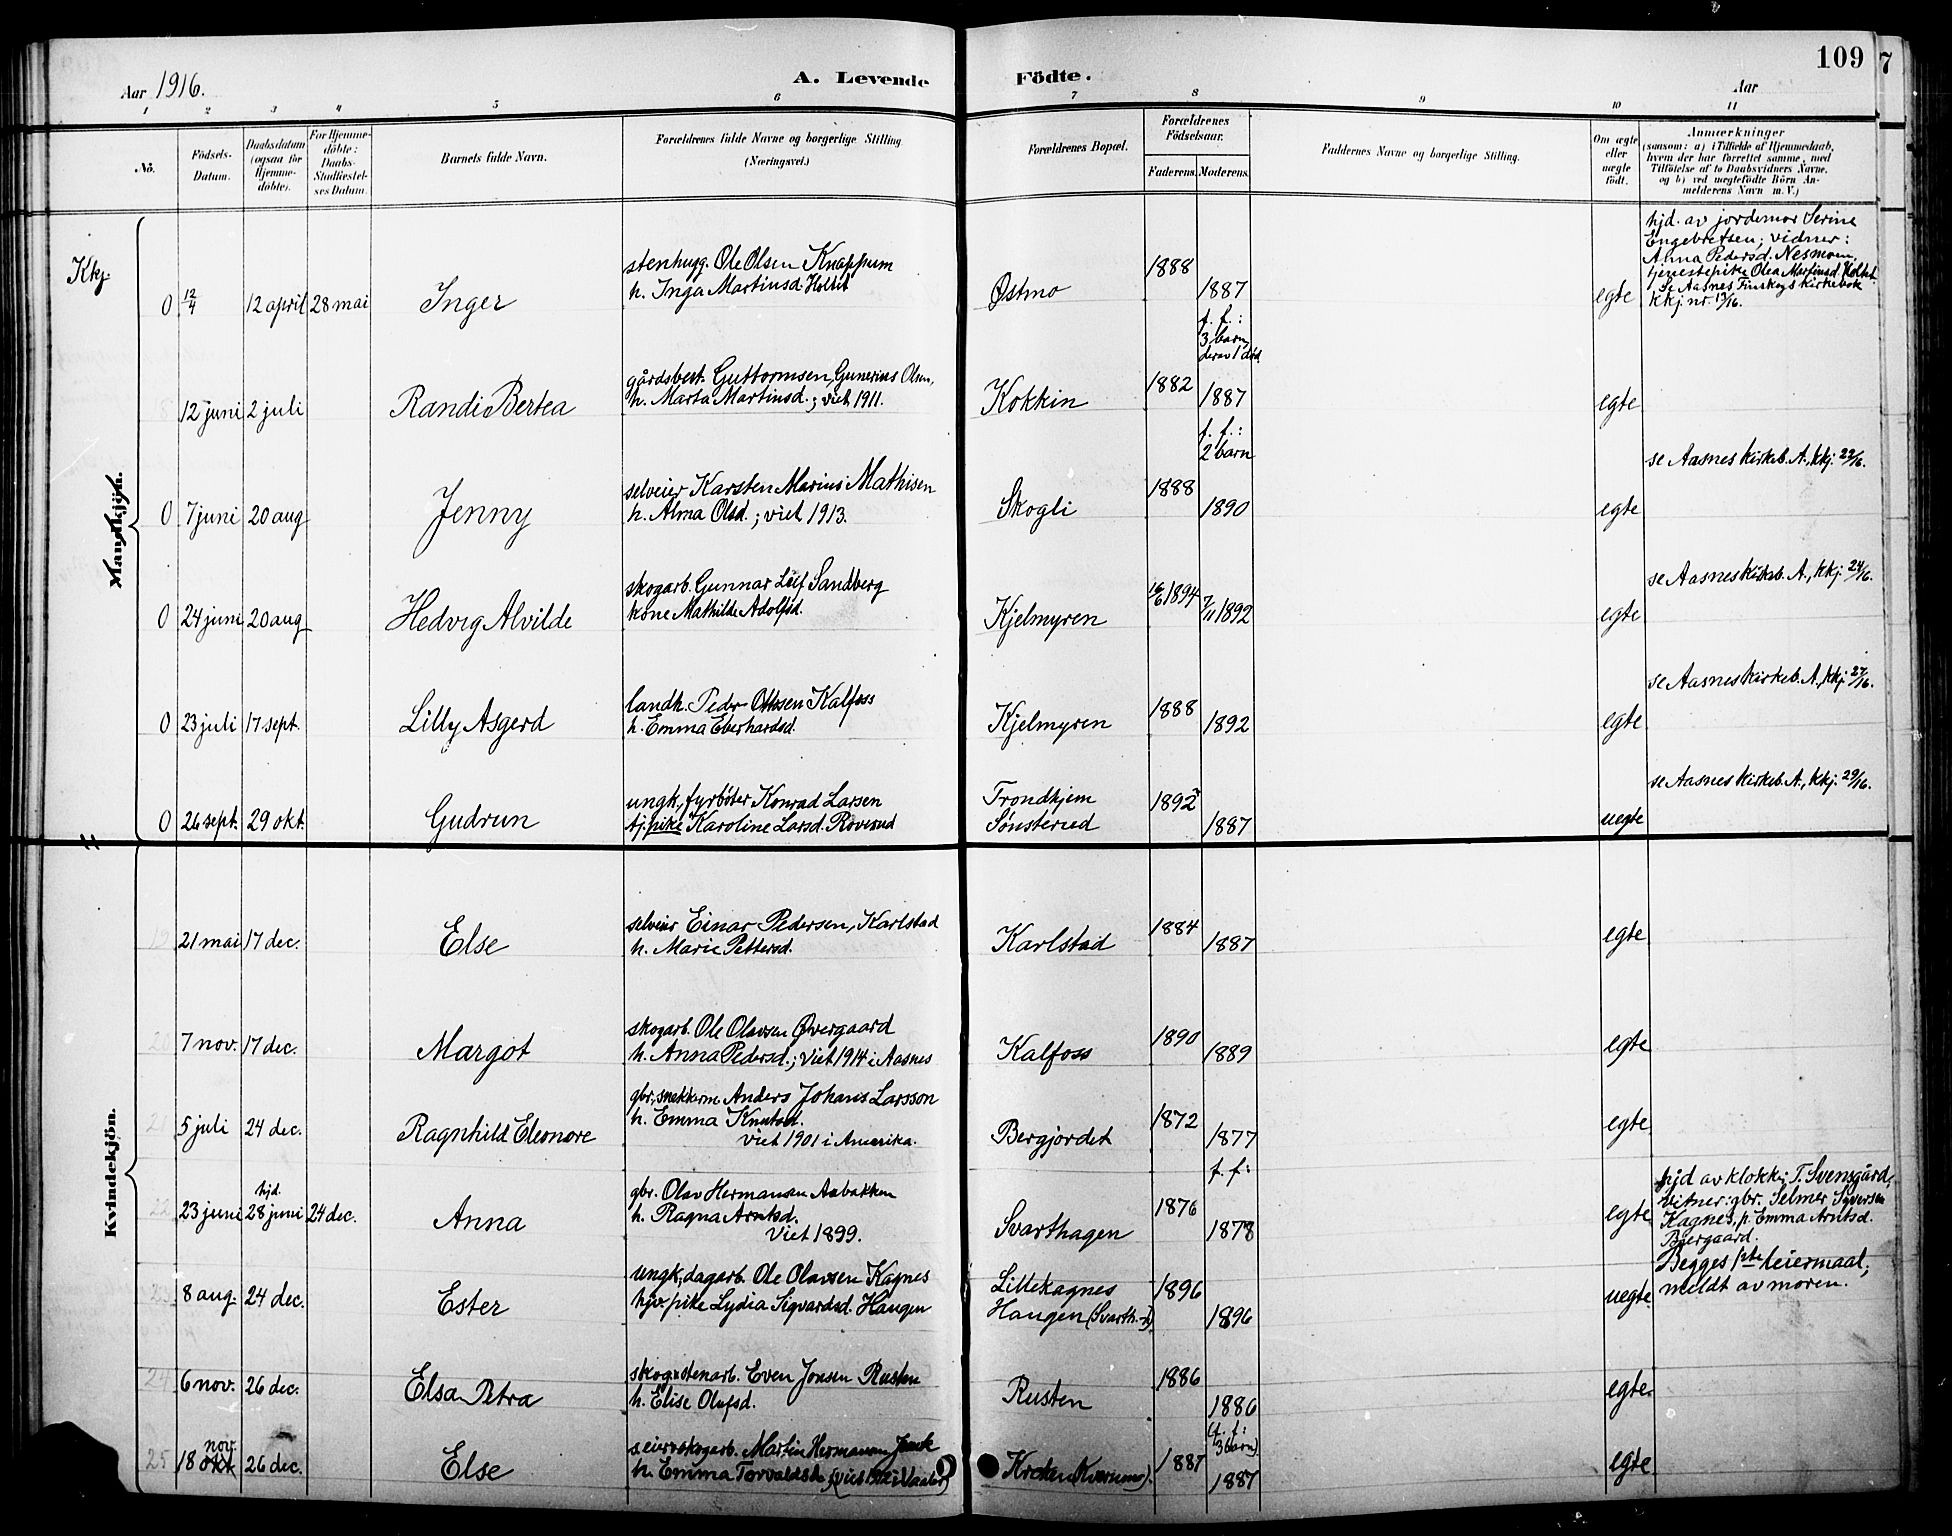 109
7
Aar 1916.
A. Levende Födte.
Aar
1 2 3 4 5 6 7 8 9 10 11
No.
Födsels-Datum.
Daabsdatum (ogsaa for Hjemme-döbte).
For Hjemme-döbte: Daabs-Stadfæstel-ses Datum.
Barnets fulde Navn.
Forældrenes fulde Navne og borgerlige Stilling (Næringsvei.)
Forældrenes Bopæl.
Forældrenes Födselsaar.
Faderens. Moderens.
Faddernes Navne og borgerlige Stilling.
Om ægte eller uægte født.
Anmærkninger
(saasom: a) i Tilfælde af Hjemmedaab, hvem der har forrettet samme, med Tilföielse af to Daabsvidners Navne, og b) ved uægtefödte Börn An-melderens Navn m. V.)
Kkj.
Mandkjön.
0 12/4 12 april 28 mai Inger
stenhugg. Ole Olsen Knappum
h. Inga Martinsd. Holtet
Østmo 1888 1887
f. f.:
3 barn,
derav 1 død
egte
hjd. av jordemor Serine
Engebretsen; vidner:
Anna Pedersd. Nesmoen,
tjenestepike Olea Martinsd. Holtet.
Se Aasnes Finskogs kirkebok
Kkj. nr. 13/16.
12 juni 2 juli Randi Bertea
gårdsbest. Guttormsen, Gunerius Olsen,
h. Marta Martinsd.; viet 1911.
Kokkin 1882 1887
f. f.:
2 barn
egte
0 7 juni 20 aug Jenny
selveier Karsten Marius Mathisen
h. Alma Olsd.; viet 1913.
Skogli 1888 1890 egte
se Aasnes kirkeb. A., kkj. 22/16.
0 24 juni 20 aug Hedvig Alvilde
skogarb. Gunnar Leif Sandberg
kone Mathilde Adolfsd.
Kjelmyren 1894 7/11 1892 egte
se Aasnes kirkeb. A., kkj. 24/16.
0 23 juli 17 sept. Lilly Asgerd
landh. Peder Ottesen Kalfoss
h. Emma Eberhardsd.
Kjelmyren 1888 1892 egte
se Aasnes kirkeb. A., kkj. 27/16.
0 26 sept. 29 okt. Gudrun
ungk., fyrbøter Konrad Larsen
tj. pike Karoline Larsd. Røverud
Trondhjem
Sønsterud
1892 1887 uegte
se Aasnes kirkeb. A., kkj. 29/16.
Kvindekjön.
19 21 mai 17 dec. Else
selveier Einar Pedersen, Karlstad
h. Marie Pettersd.
Karlstad 1884 1887 egte
20 7 nov. 17 dec. Margot
skogarb. Ole Olavsen Øvergaard
h. Anna Pedersd.; viet 1914 i Aasnes
Kalfoss 1890 1889 egte
21 5 juli 24 dec. Ragnhild Eleonore
gbr., snekkerm. Anders Johans Larsson
h. Emma Knutsd.
viet 1901 i Amerika.
Bergjordet 1872 1877
f. f.:
egte
22 23 juni hjd. 28 juni 24 dec. Anna
gbr. Olav Hermansen Aabakken
h. Ragna Arntsd.
Viet 1899.
Svarthagen 1876 1878 egte
hjd av klokker T. Svensgård,
vitner: gbr. Selmer Syversen
Kagnes, p. Emma Arntsd.
Bjergaard.
23 8 aug. 24 dec. Ester
ungk., dagarb. Ole Olavsen Kagnes
hjv. pike Lydia Sigvardsd. Haugen
Lillekagnes
Haugen (Svarth.)
1896 1896 uegte
Begges 1ste leiermaal;
meldt av moren.
24 6 nov. 26 dec. Elsa Petra
skog & stenarb. Even Jonsen Rusten
h. Elise Olufsd.
Rusten 1886 1886 egte
25 18 nov. okt. 26 dec. Else
skogarb. Martin Hermansen
h. Emma Torvaldsd.
1887
(f. f.:
3 barn)
1887
egte